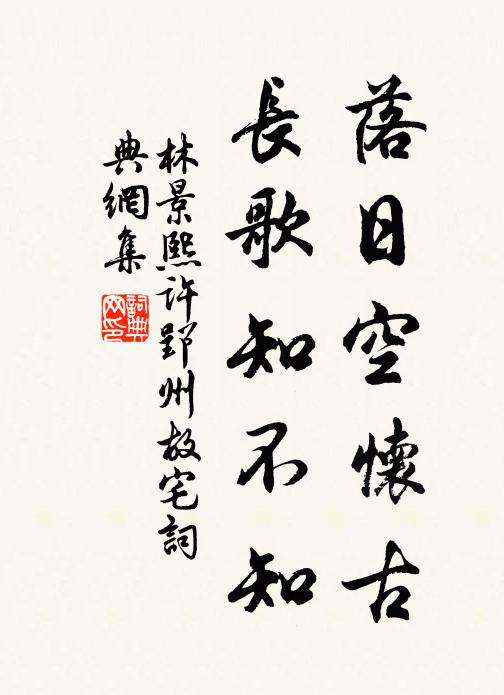 落日空懷古
長歌知不知
林景熙許郢州故宅詞
典網集
詞典
网印